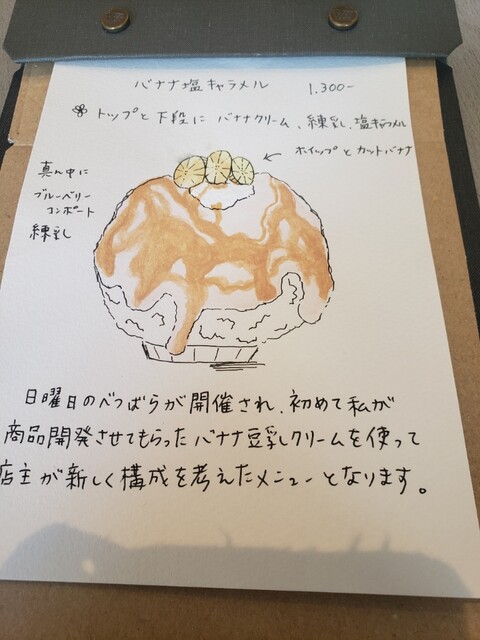 バナナ塩キャラメル 1.300-
❀ トップと下段に バナナクリーム、練乳、塩キャラメル
← ホイップとカットバナナ
真ん中に
ブルーベリー
コンポート
練乳
日曜日のべつばらが開催され、初めて私が
商品開発させてもらったバナナ豆乳クリームを使って
店主が新しく構成を考えたメニューとなります。